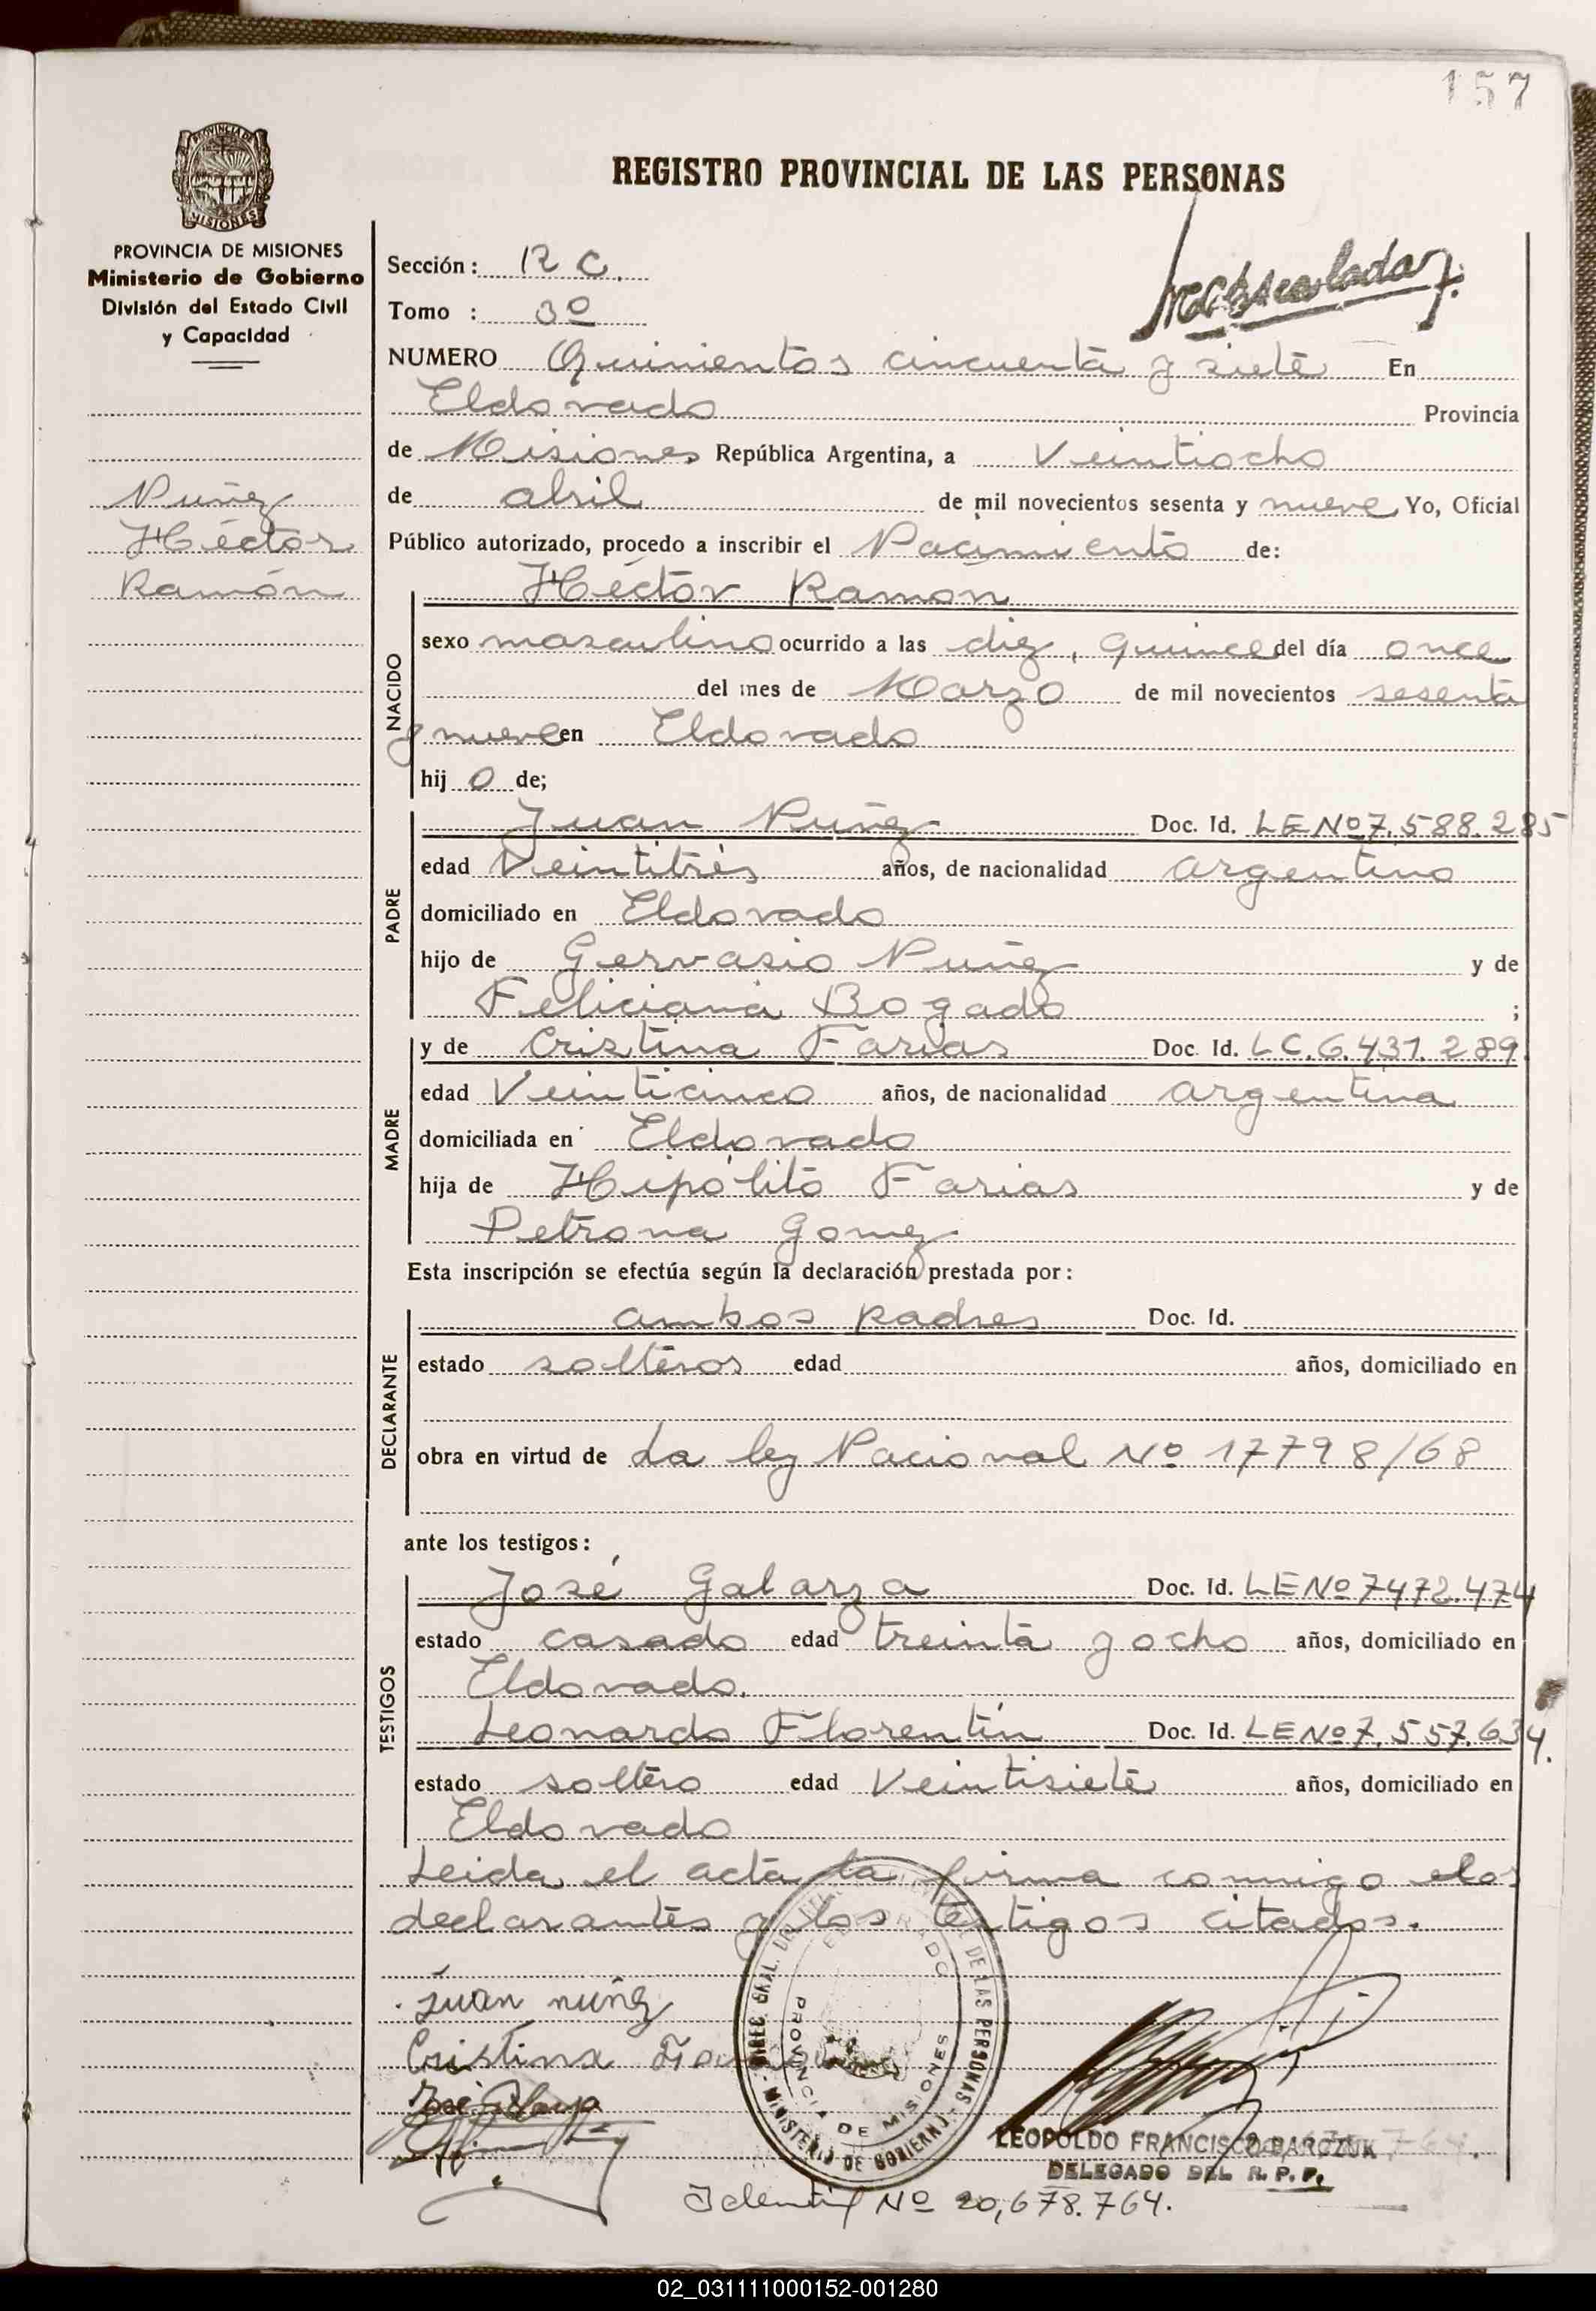 157
PROVINCIA DE MISIONES
REGISTRO PROVINCIAL DE LAS PERSONAS
PROVINCIA DE MISIONES
Ministerio de Gobierno
División del Estado Civil
y Capacidad
Sección: 12 C.
Tomo : 3º
NUMERO Quinientos cincuenta y siete En
Eldorado Provincia
de Misiones República Argentina, a Veintiocho
de abril de mil novecientos sesenta y nueve Yo, Oficial
Público autorizado, procedo a inscribir el Nacimiento de:
Nuñez
Héctor
Ramón
Héctor Ramón
NACIDO
sexo masculino ocurrido a las diez, quince del día once
del mes de Marzo de mil novecientos sesenta
y nueve en Eldorado
hij o de;
PADRE
Juan Nuñez Doc. Id. LE Nº 7.588.285
edad Veintitrés años, de nacionalidad argentino
domiciliado en Eldorado
hijo de Gervasio Nuñez y de
Feliciana Bogado ;
MADRE
y de Cristina Farias Doc. Id. L C. 6.431.289
edad Veinticinco años, de nacionalidad argentina
domiciliada en Eldorado
hija de Hipólito Farias y de
Petrona Gomez
Esta inscripción se efectúa según la declaración prestada por:
DECLARANTE
ambos padres Doc. Id.
estado solteros edad años, domiciliado en
obra en virtud de La ley Nacional Nº 17798/68
ante los testigos:
TESTIGOS
José Galarza Doc. Id. LE Nº 7472.474
estado casado edad treinta y ocho años, domiciliado en
Eldorado.
Leonardo Florentín Doc. Id. LE Nº 7.557.634.
estado soltero edad Veintisiete años, domiciliado en
Eldorado
Leida el acta la firma conmigo los
declarantes y los testigos citados.
Juan nuñez
Cristina
DIREC. GRAL. DEL DE LAS PERSONAS - MINISTERIO DE GOBIERNO -
ELDORADO
PROVINCIA DE MISIONES
LEOPOLDO FRANCISCO BARCZUK
DELEGADO DEL R. P. P.
Identif Nº 20,678.764.
02_031111000152-001280